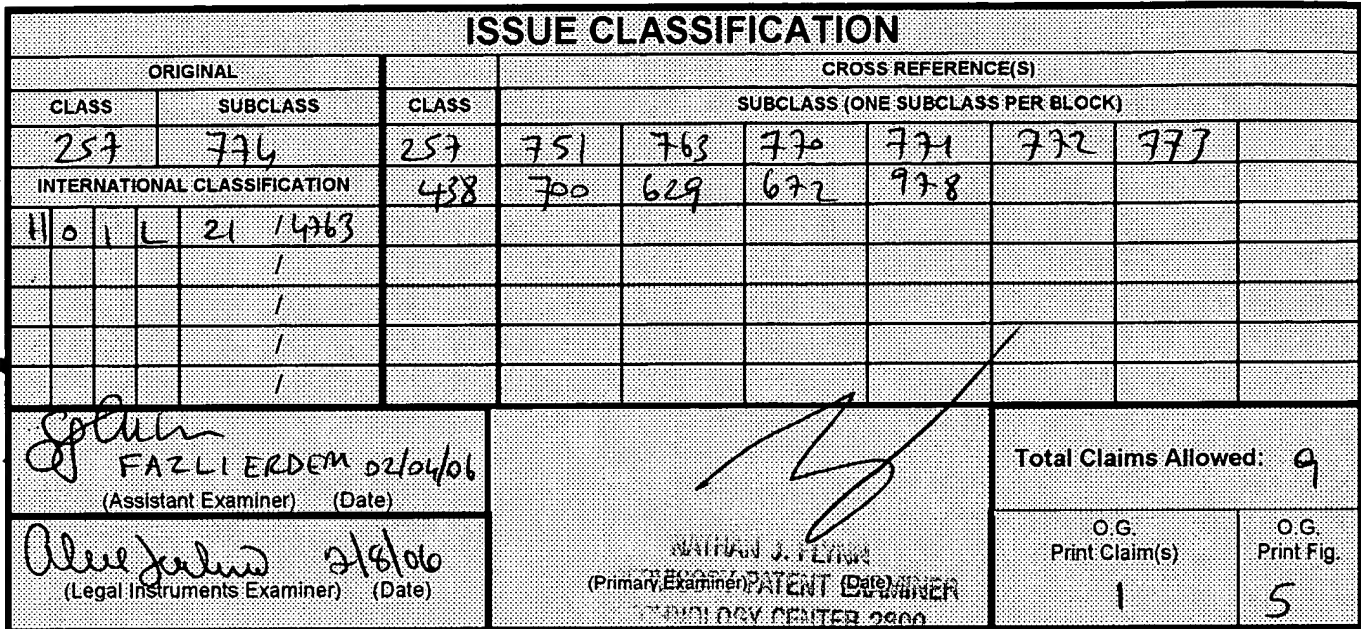 ISSUE CLASSIFICATION
ORIGINAL CROSS REFERENCE(S)
CLASS SUBCLASS CLASS SUBCLASS (ONE SUBCLASS PER BLOCK)
257 774 257 751 763 770 771 772 773
INTERNATIONAL CLASSIFICATION 438 700 629 672 978
H 0 1 L 21 / 4763
/
/
/
/
FAZLI ERDEM 02/04/06
(Assistant Examiner) (Date)
Total Claims Allowed: 9
2/8/06
(Legal Instruments Examiner) (Date)
NATHAN J. FLYNN
(Primary Examiner) (Date)
PATENT EXAMINER
TECHNOLOGY CENTER 2800
O.G. Print Claim(s)
1
O.G. Print Fig.
5